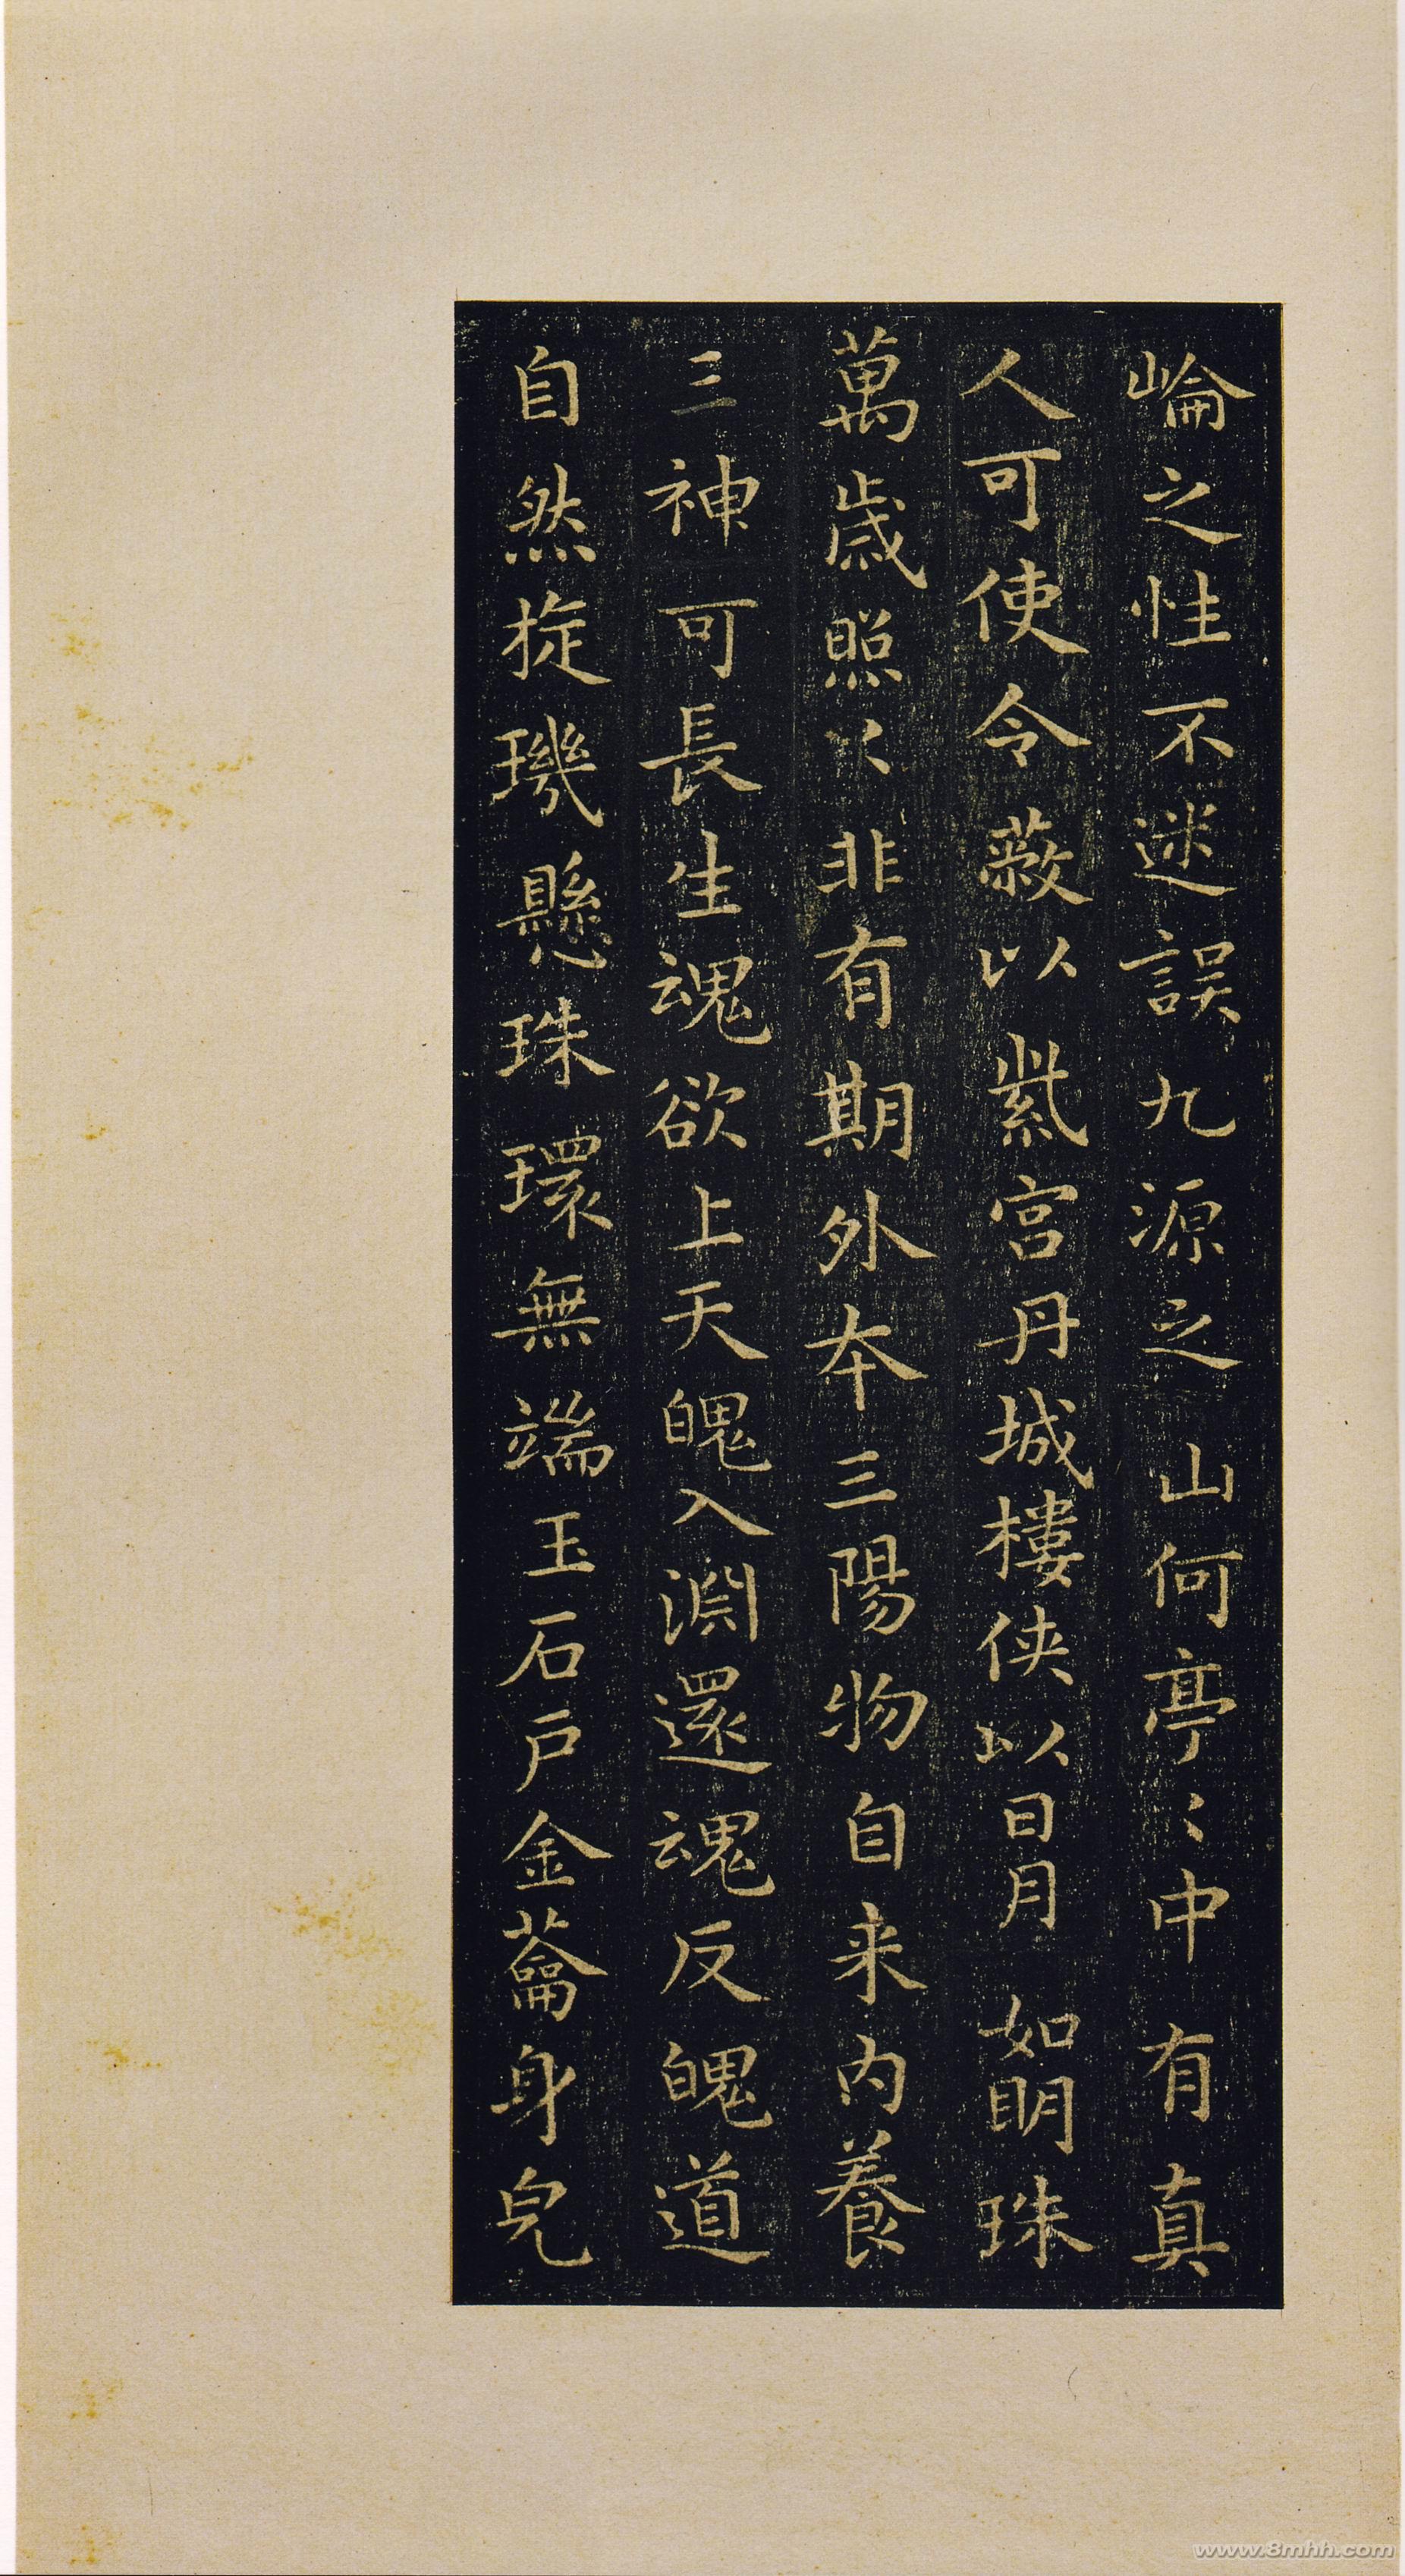 崘之性不迷誤九源之山何亭〻中有真
人可使令蔽以紫宫丹城樓侠以日月如明珠
萬歲照〻非有期外夲三陽物自来内養
三神可長生魂欲上天魄入淵還魂反魄道
自然旋璣懸珠環無端玉石戶金蘥身皃
www.8mhh.com